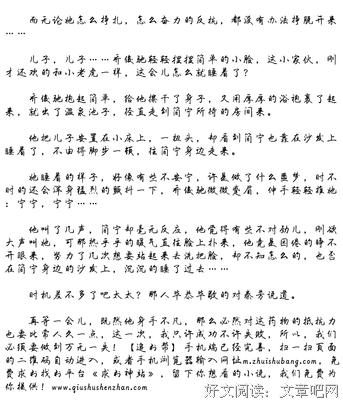 而无论他怎么挣扎，怎么奋力的反抗，都没有办法挣脱开来
……
儿子，儿子……乔俊驰轻轻摆摆简单的小脸，这小家伙，刚
才还欢的和小老虎一样，这会儿怎么就睡着了？
乔俊驰抱起简单，给他擦干了身子，又用厚厚的浴袍裹了起
来，就出了温泉池子，径直走到简宁所待的房间来。
他把儿子安置在小床上，一扭头，却看到简宁也靠在沙发上
睡着了，不由得脚步一横，往简宁身边走来。
她睡着的样子，好像有些不安宁，许是做了什么噩梦，时不
时的还会浑身猛烈的颤抖一下，乔俊驰微微蹙眉，伸手轻轻推她
：宁宁，宁宁……
他叫了几声，简宁却毫无反应，他觉得有些不对劲儿，刚欲
大声叫她，可那热乎乎的暖气直往脸上扑来，他竟是困倦的睁不
开眼来，努力了几次想要站起来去洗把脸，却不知怎么的，也忽
在简宁身边的沙发上，沉沉的睡了过去……
时机差不多了吧太太？那人毕恭毕敬的对秦芳说道。
再等一会儿，既然他身手不凡，那么必然对这药物的抵抗力
也要比常人久一点，这一次，我只许成功不许失败，所以，我们
必须要做到万无一失！【追书帮】手机端已经完善，扫一扫页面
的二维码自动进入，或者手机浏览器输入网址m.zhuishubang.com，免
费求书找书平台《求书神站》，留下你想看的小说，我们免费为
你提供！www.qiushushenzhan.com
好文阅读：文章吧网